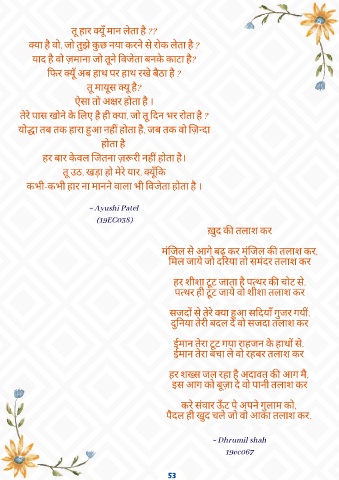 तू हार क्यूँ मान लेता है ??
क्या है वो, जो तुझे कुछ नया करने से रोक लेता है ?
याद है वो ज़माना जो तूने विजेता बनके काटा है?
फिर क्यूँ अब हाथ पर हाथ रखे बैठा है ?
तू मायूस क्यू है?
ऐसा तो अक्षर होता है ।
तेरे पास खोने के लिए है ही क्या, जो तू दिन भर रोता है ?
योद्धा तब तक हारा हुआ नहीं होता है, जब तक वो ज़िन्दा
होता है
हर बार केवल जितना ज़रूरी नहीं होता है।
तू उठ, खड़ा हो मेरे यार, क्यूँकि
कभी-कभी हार ना मानने वाला भी विजेता होता है ।
- Ayushi Patel
(19EC038)
ख़ुद की तलाश कर
मंजिल से आगे बढ़ कर मंजिल की तलाश कर,
मिल जाये जो दरिया तो समंदर तलाश कर
हर शीशा टूट जाता है पत्थर की चोट से,
पत्थर ही टूट जाये वो शीशा तलाश कर
सजदों से तेरे क्या हुआ सदियाँ गुजर गयीं,
दुनिया तेरी बदल दे वो सजदा तलाश कर
ईमान तेरा टूट गया राहजन के हाथों से,
ईमान तेरा बचा ले वो रहबर तलाश कर
हर शख्स जल रहा है अदावत की आग मै,
इस आग को बूज़ा दे वो पानी तलाश कर
करे संवार ऊँट पे अपने गुलाम को,
पैदल ही खुद चले जो वो आका तलाश कर.
- Dhrumil shah
19ec067
53